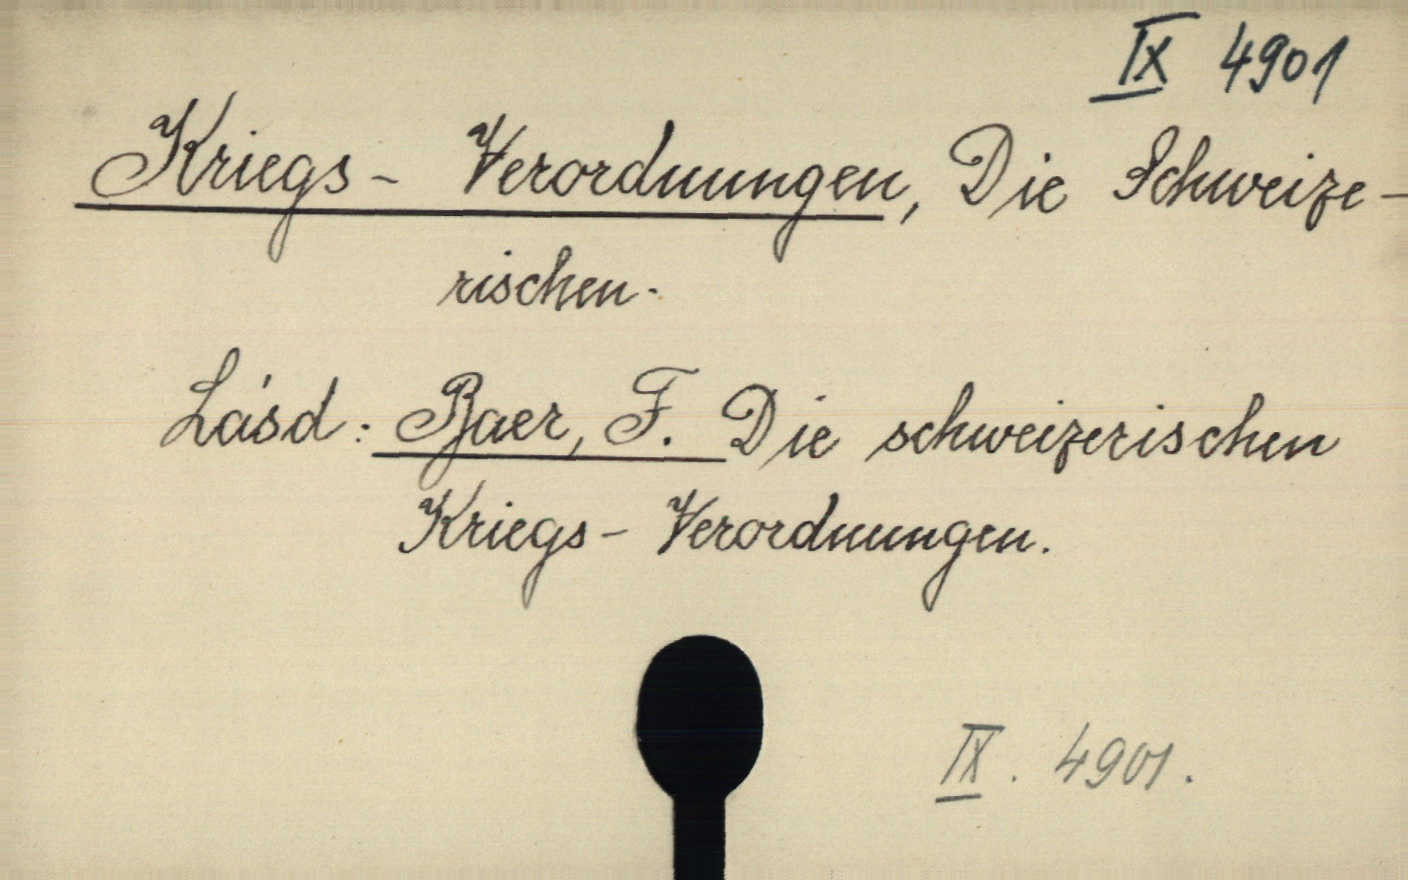 IX 4901
Kriegs - Verordnungen, Die Schweize-
rischen.
Lásd: Baer, F. Die schweizerischen
Kriegs - Verordnungen.
IX. 4901.